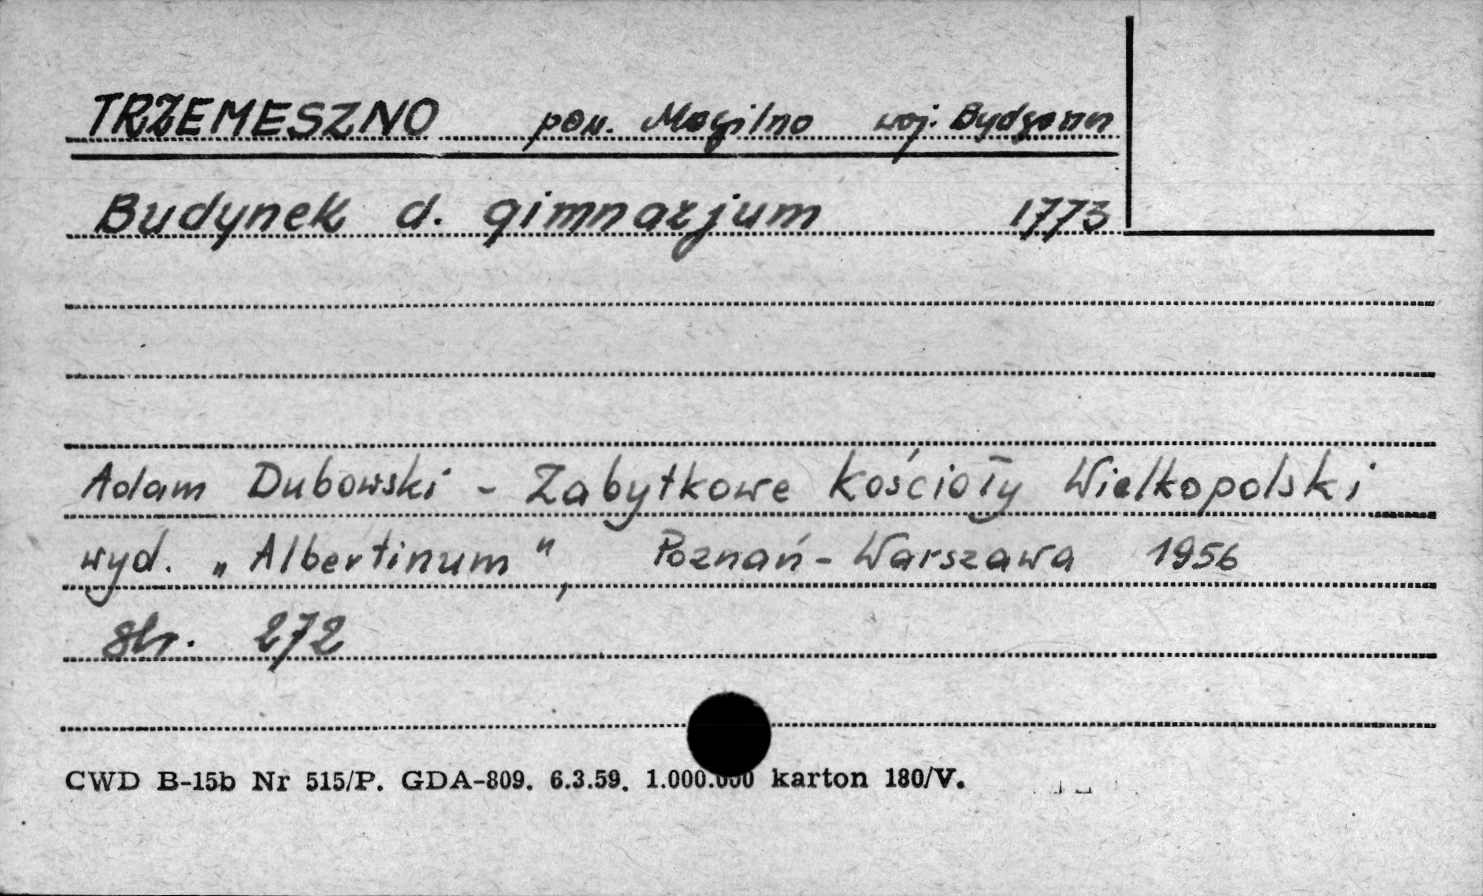 TRZEMESZNO pow. Mogilno woj. Bydgoszcz
Budynek d. gimnazjum 1773
Adam Dubowski - Zabytkowe Kościoły Wielkopolski
wyd. „Albertinum", Poznań-Warszawa 1956
str. 272
CWD B-15b Nr 515/P. GDA-809. 6.3.59. 1.000.000 karton 180/V.